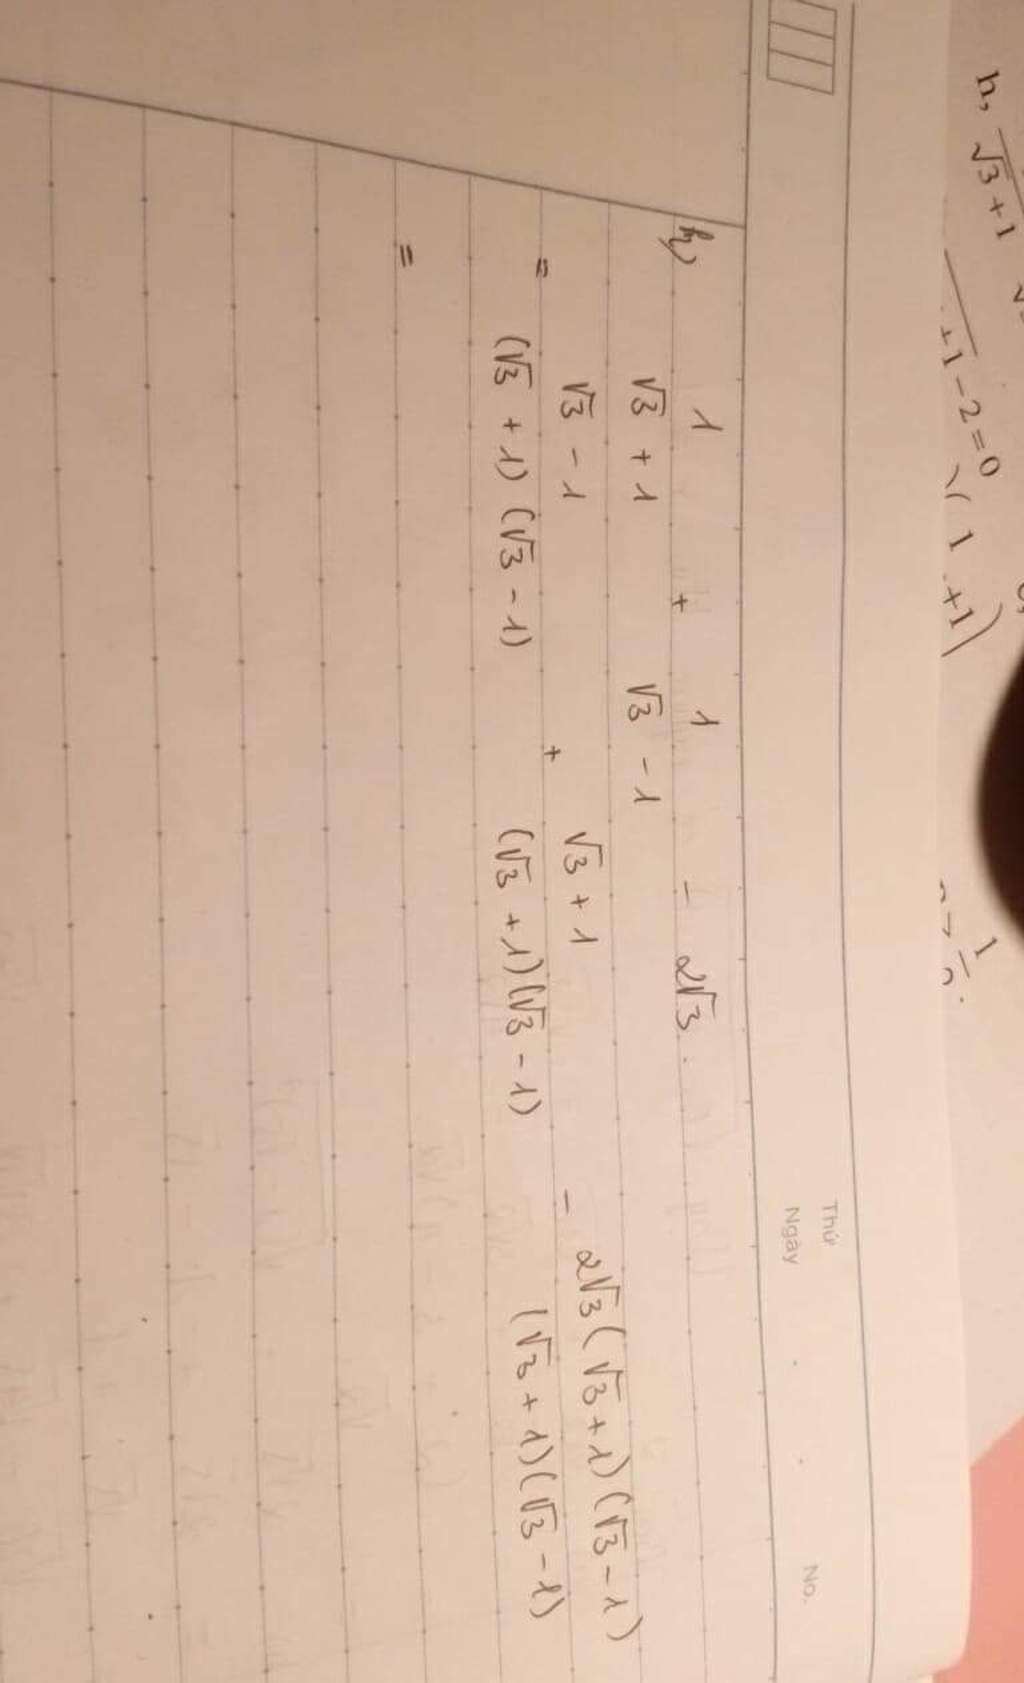 h, √3 +1
+1 - 2 = 0
( 1 +1)
Thứ
Ngày No.
h, 1/(√3 + 1) + 1/(√3 - 1) - 2√3.
= (√3 - 1)/((√3 + 1)(√3 - 1)) + (√3 + 1)/((√3 + 1)(√3 - 1)) - 2√3(√3+1)(√3-1)/((√3+1)(√3-1))
=